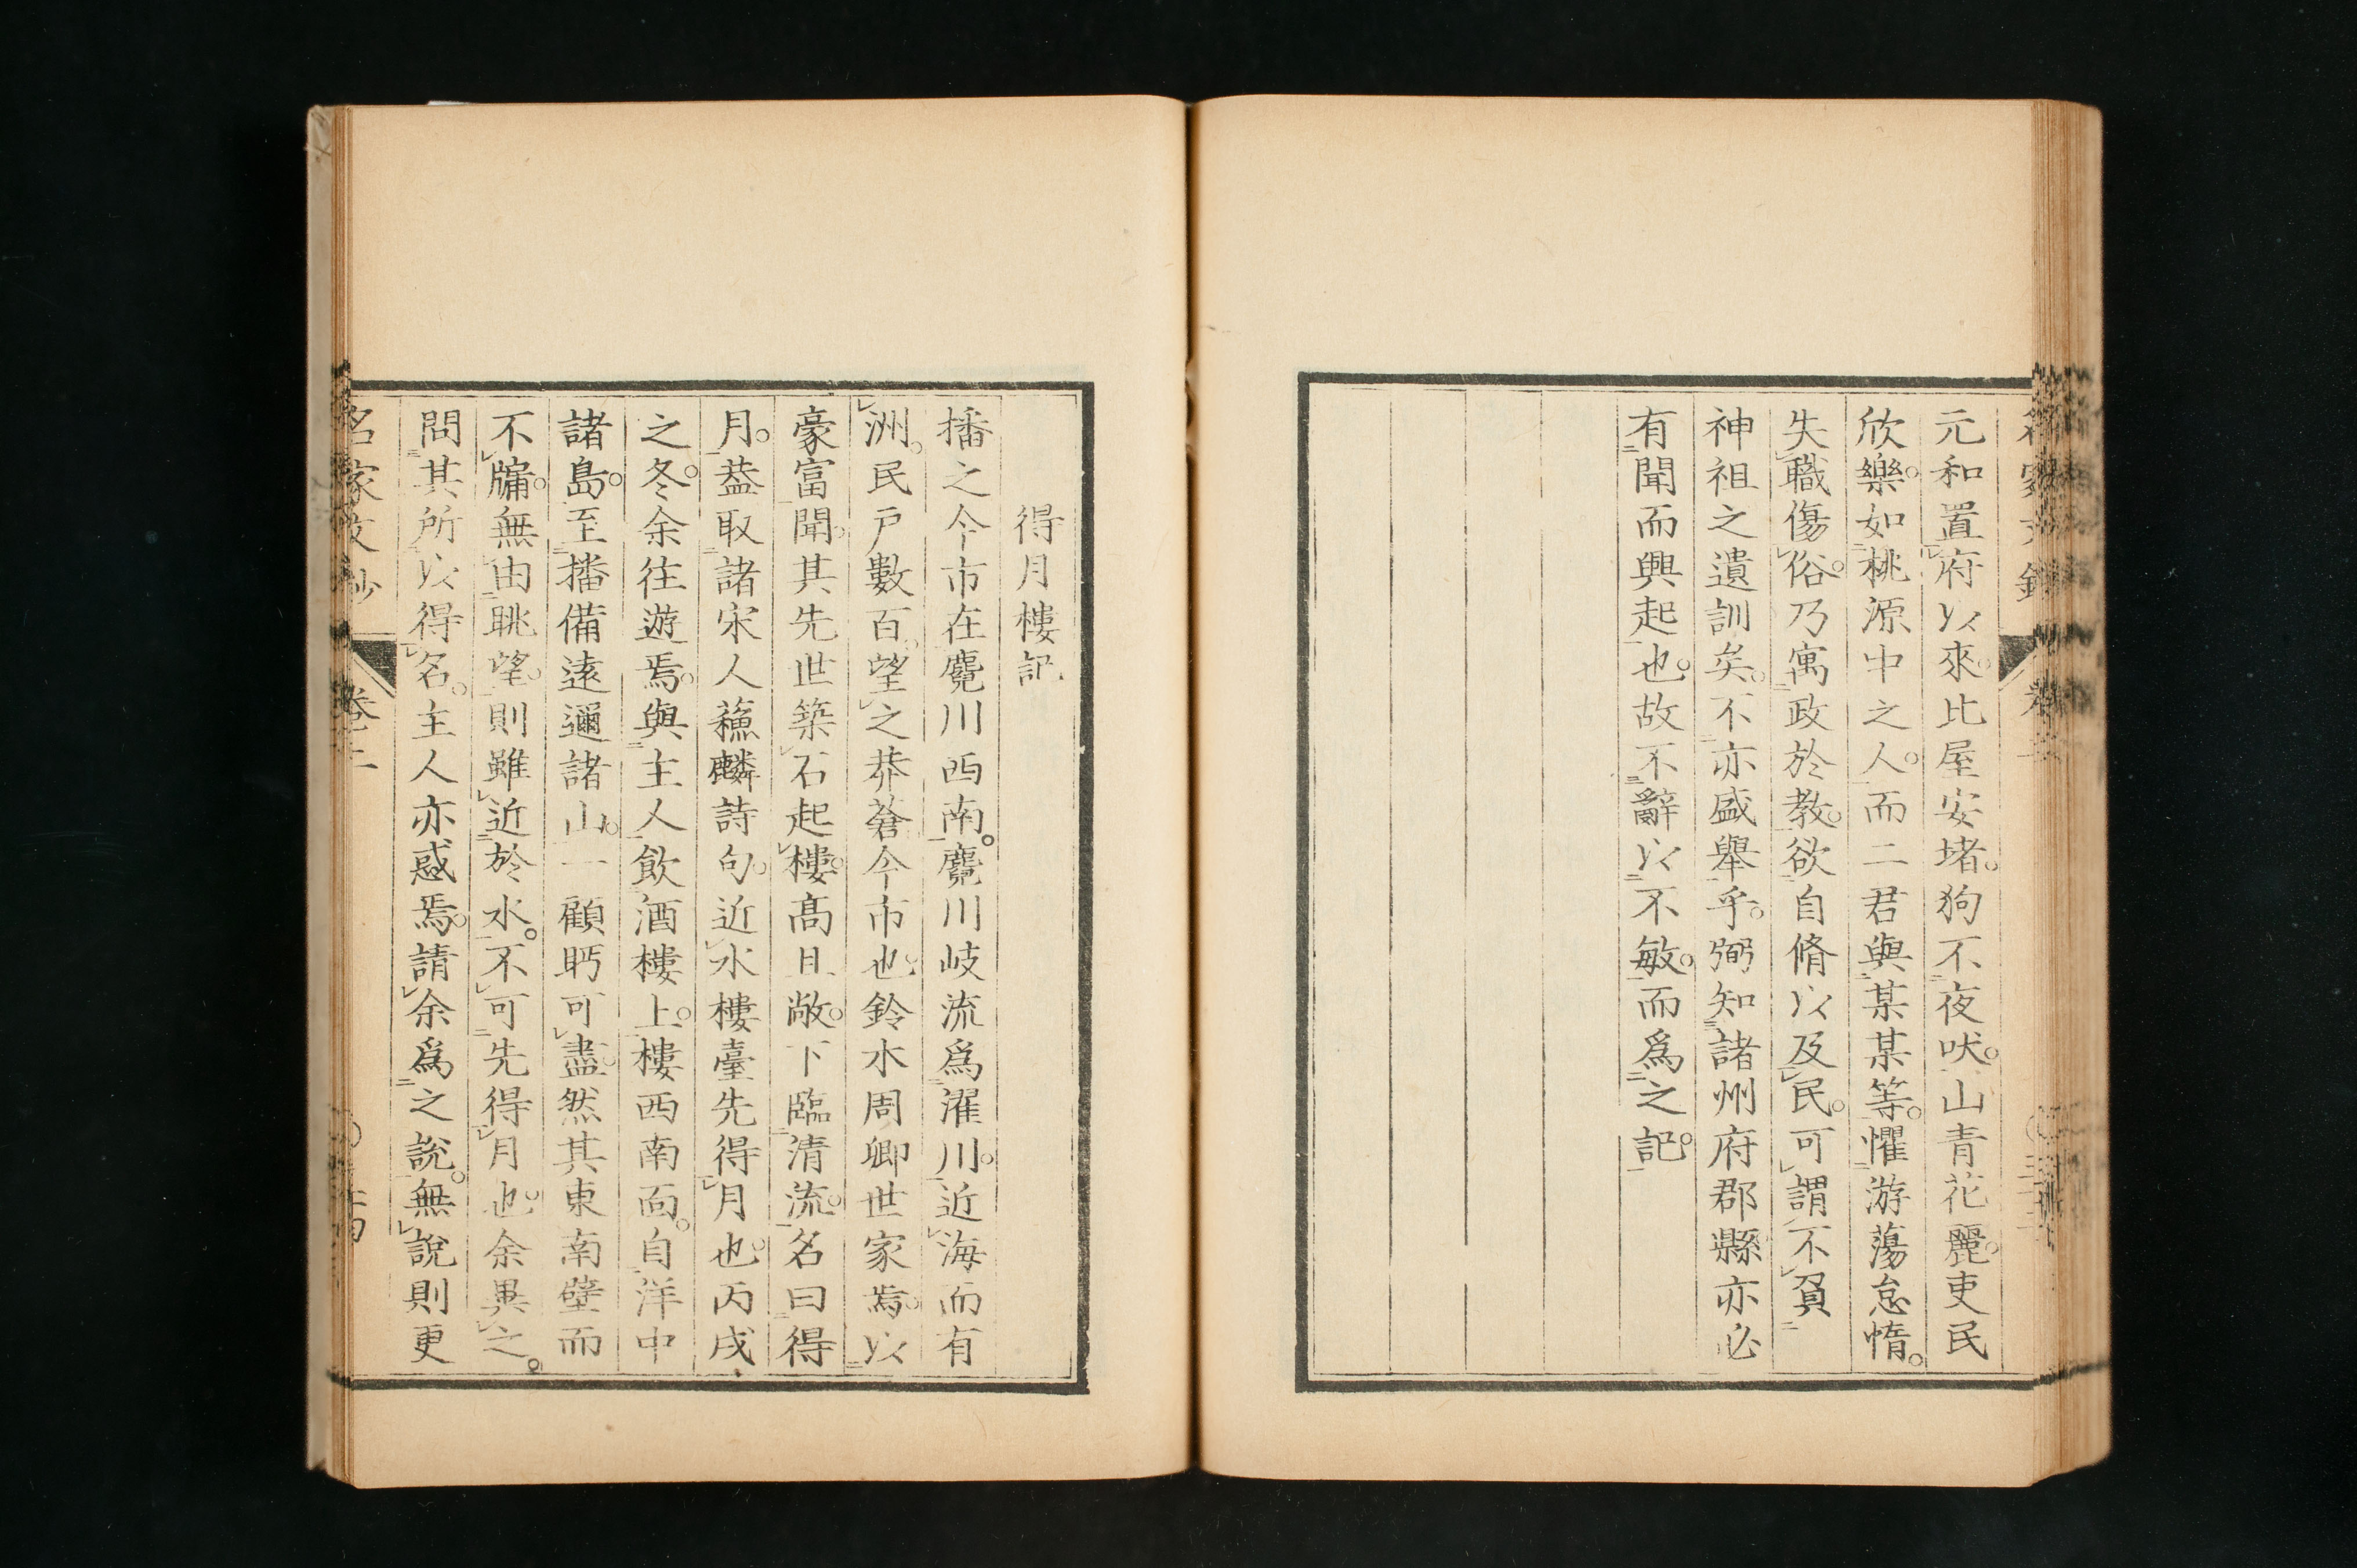 元和置府以來。比屋安堵。狗不夜吠。山青花麗。吏民
欣樂。如桃源中之人。而二君與某某等。懼游蕩怠惰。
失職傷俗。乃寓政於教。欲自脩以及民。可謂不負
神祖之遺訓矣。不亦盛舉乎。弼知諸州府郡縣亦必
有聞而興起也。故不辭以不敏。而爲之記。
得月樓記
播之今市在麑川西南。麑川岐流爲濯川。近海而有
洲。民戶數百。望之莽蒼今市也。鈴木周卿世家焉。以
豪富聞。其先世築石起樓。高且敞。下臨清流。名曰得
月。葢取諸宋人蘓麟詩句。近水樓臺先得月也。丙戌
之冬。余往遊焉。與主人飲酒樓上。樓西南面。自洋中
諸島。至播備遠邇諸山。一顧眄可盡。然其東南壁而
不牗。無由眺望。則雖近於水。不可先得月也。余異之。
問其所以得名。主人亦惑焉。請余爲之說。無說則更
名家文鈔
卷三